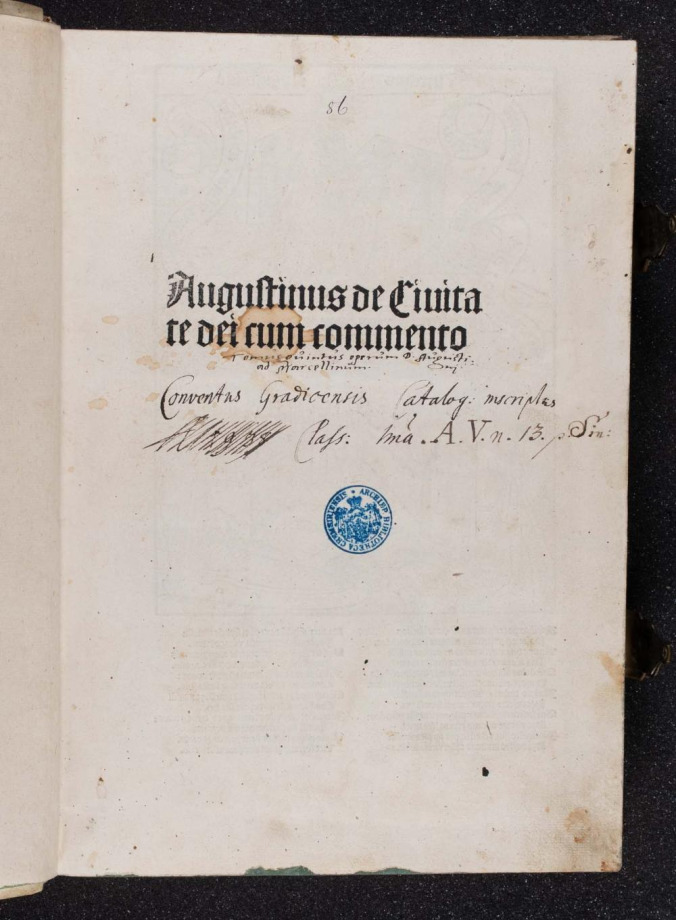 86
Augustinus de Ciuita
te dei cum commento
Tomus Quintus operum D. Augusti:
ad Marcellinum
Conventus Gradicensis Catalog: inscriptus
Class: Ima. A. V. n. 13.
ARCHIEP BIBLIOTHECA CREMSIRIENSIS